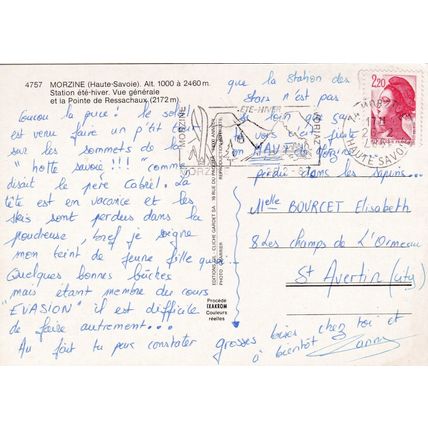 4757 MORZINE (Haute-Savoie). Alt. 1000 à 2460 m.
Station été-hiver. Vue générale
et la Pointe de Ressachaux (2172 m)
Coucou la puce! le soleil
est venu faire un p'tit tour
sur les sommets de la
"hotte savoie!!!" comme
disait le père Cabriel. La
tête est en vacance et les
skis sont perdus dans la
poudreuse, bref je soigne
mon teint de jeune fille
Quelques bonnes bûches
mais étant membre du cours
"EVASION" il est difficile
de faire autrement...
Au fait tu peux constater
que la station des
stars n'est pas
si loin que ça
perdu dans les sapins...
grosses bises chez toi et
à bientôt
MORZINE
ÉTÉ-HIVER
AVORIAZ
MORZINE
2,20
HAUTE SAVOIE
Procédé
LUXACROM
Couleurs
réelles
Melle BOURCET Elisabeth
8 Les champs de L'Ormeau
St Avertin